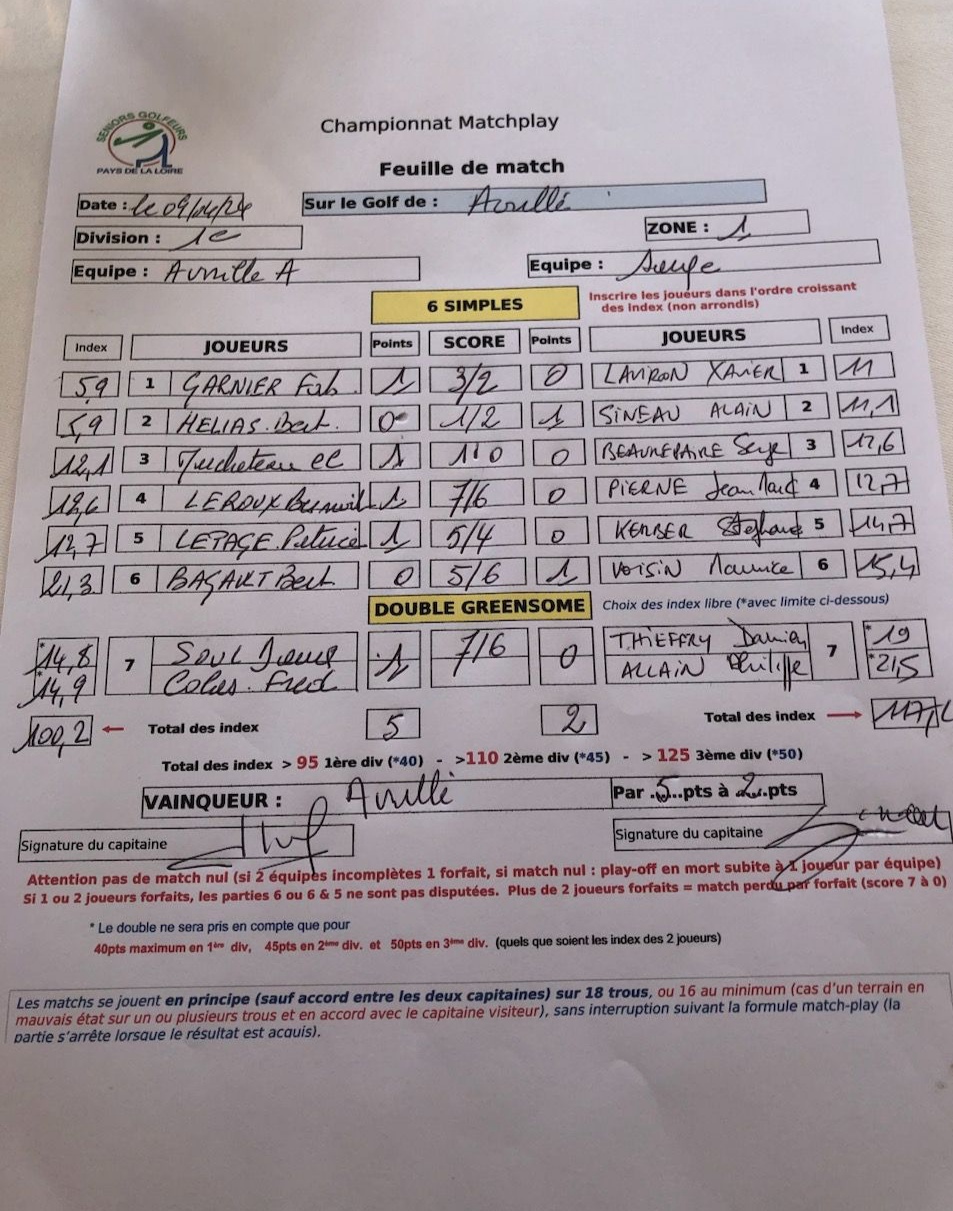 SENIORS GOLFEURS
PAYS DE LA LOIRE
Championnat Matchplay
Feuille de match
Date : le 09/04/24 Sur le Golf de : Avrillé
Division : 1e ZONE : 1
Equipe : Avrille A Equipe :
6 SIMPLES Inscrire les joueurs dans l'ordre croissant
des index (non arrondis)
Index JOUEURS Points SCORE Points JOUEURS Index
5,9 1 GARNIER Fab. 1 3/2 0 LAVIRON XAVIER 1 11
5,9 2 HELIAS. Bert. 0 1/2 1 SINEAU ALAIN 2 11,1
12,1 3 1 1 0 0 BEAUREPAIRE Serge 3 12,6
12,6 4 LEROUX 1 7/6 0 PIERNE Jean Marc 4 12,7
12,7 5 LEPAGE. Patrice 1 5/4 0 KERBER Stephane 5 14,7
21,3 6 Bert 0 5/6 1 VOISIN Maurice 6 15,4
DOUBLE GREENSOME Choix des index libre (*avec limite ci-dessous)
*14,8 7 SOUL 1 7/6 0 THIEFFRY Damien 7 *19
*14,9 Fred ALLAIN Philippe *21,5
100,2 ← Total des index 5 2 Total des index →
Total des index > 95 1ère div (*40) - >110 2ème div (*45) - > 125 3ème div (*50)
VAINQUEUR : Avrillé Par .5...pts à 2...pts
Signature du capitaine Signature du capitaine
Attention pas de match nul (si 2 équipes incomplètes 1 forfait, si match nul : play-off en mort subite à 1 joueur par équipe)
Si 1 ou 2 joueurs forfaits, les parties 6 ou 6 & 5 ne sont pas disputées. Plus de 2 joueurs forfaits = match perdu par forfait (score 7 à 0)
* Le double ne sera pris en compte que pour
40pts maximum en 1ère div, 45pts en 2ème div. et 50pts en 3ème div. (quels que soient les index des 2 joueurs)
Les matchs se jouent en principe (sauf accord entre les deux capitaines) sur 18 trous, ou 16 au minimum (cas d'un terrain en
mauvais état sur un ou plusieurs trous et en accord avec le capitaine visiteur), sans interruption suivant la formule match-play (la
partie s'arrête lorsque le résultat est acquis).